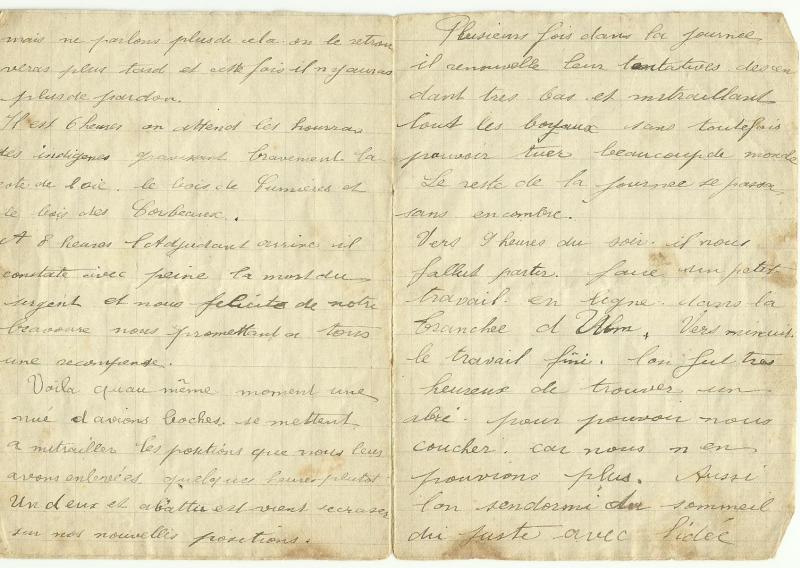 mais ne parlons plus de cela on le retrou
veras plus tard et cette fois il n y auras
plus de pardon.
Il est 6 heures on attend les hourras
des indigenes gravissant bravement la
cote de l'oie. le bois de Cumières et
le bois des Corbeaux.
A 8 heures l'Adjudant arrive il
constate avec peine la mort du
sergent et nous felicite de notre
bravoure nous promettant a tous
une recompense.
Voila quau même moment une
nué d avions boches se mettent
a mitrailler les positions que nous leurs
avons enlevées quelques heures plutot
Un deux et abattu est vient secraser
sur nos nouvelles positions.
Plusieurs fois dans la journee
il renouvelle leur tentatives descen
dant tres bas et mitraillant
tout les boyaux sans toutefois
pouvoir tuer beaucoup de monde
Le reste de la journee se passa
sans encombre.
Vers 9 heures du soir. il nous
fallut partir. faire un petit
travail. en ligne. dans la
tranchee d Ulm. Vers minuit
le travail fini. l'on fut tres
heureux de trouver un
abri. pour pouvoir nous
coucher. car nous n en
pouvions plus. Aussi
l'on sendormi du sommeil
du juste avec l'idée